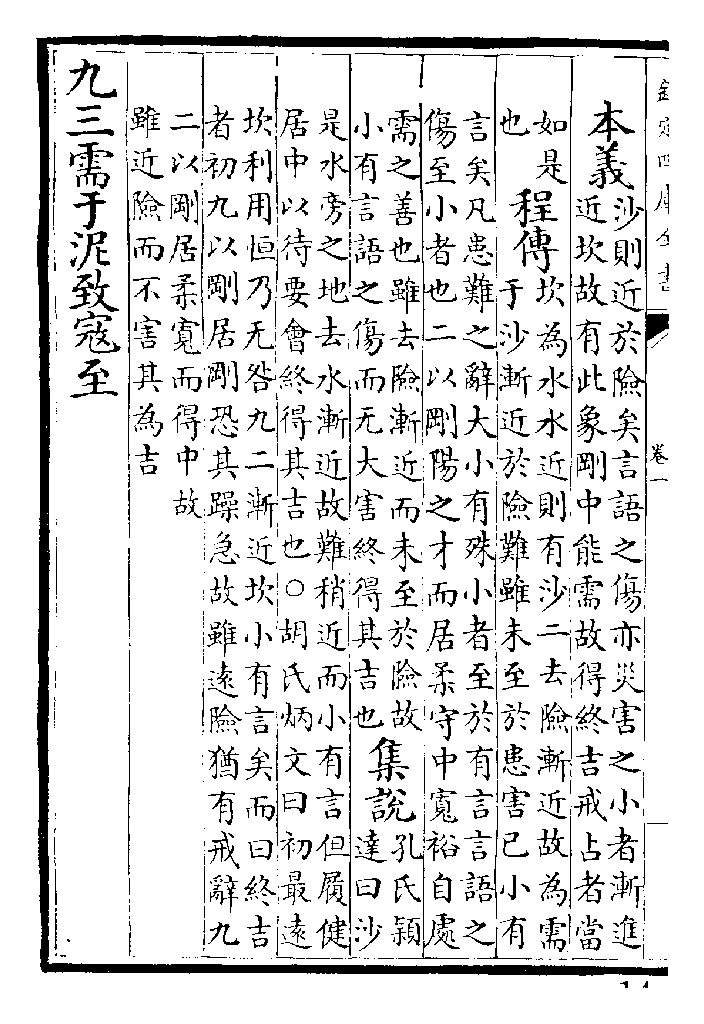 欽定四庫全書 卷一
本義沙則近於險矣言語之傷亦災害之小者漸進
近坎故有此象剛中能需故得終吉戒占者當
如是
也
程傳坎為水水近則有沙二去險漸近故為需
于沙漸近於險難雖未至於患害已小有
言矣凡患難之辭大小有殊小者至於有言言語之
傷至小者也二以剛陽之才而居柔守中寬裕自處
需之善也雖去險漸近而未至於險故
小有言語之傷而无大害終得其吉也
集說孔氏穎
達曰沙
是水旁之地去水漸近故難稍近而小有言但履健
居中以待要會終得其吉也○胡氏炳文曰初最遠
坎利用恒乃无咎九二漸近坎小有言矣而曰終吉
者初九以剛居剛恐其躁急故雖遠險猶有戒辭九
二以剛居柔寬而得中故
雖近險而不害其為吉
九三需于泥致寇至